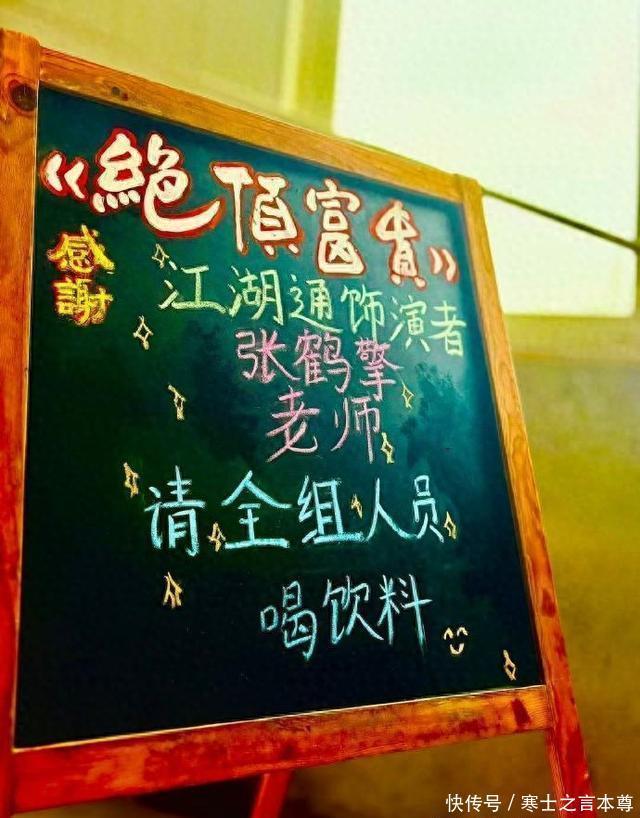 《絕頂富貴》
感謝
江湖通饰演者
张鹤擎
老师
请全组人员
喝饮料
快传号/寒士之言本尊